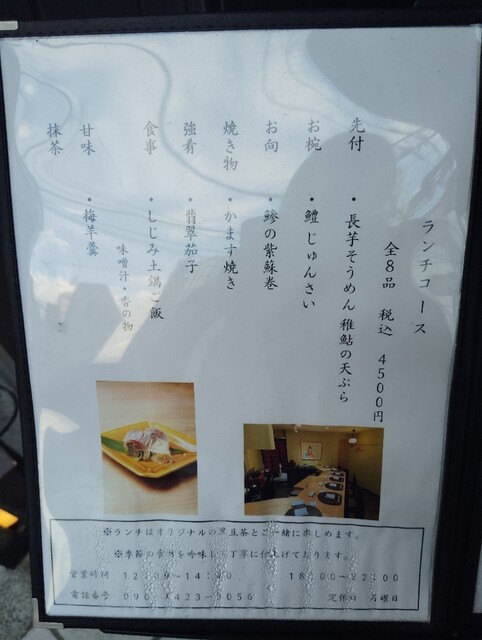 ランチコース
全8品 税込 4500円
先付 ・長芋そうめん 稚鮎の天ぷら
お椀 ・鱧 じゅんさい
お向 ・鯵の紫蘇巻
焼き物 ・かます焼き
強肴 ・翡翠茄子
食事 ・しじみ土鍋ご飯
味噌汁・香の物
甘味 ・梅羊羹
抹茶
※ランチはオリジナルの黒豆茶とご一緒に楽しめます。
※季節の食材を吟味し、丁寧に仕上げております。
営業時間 12:00~14:00 18:00~22:00
電話番号 定休日 月曜日